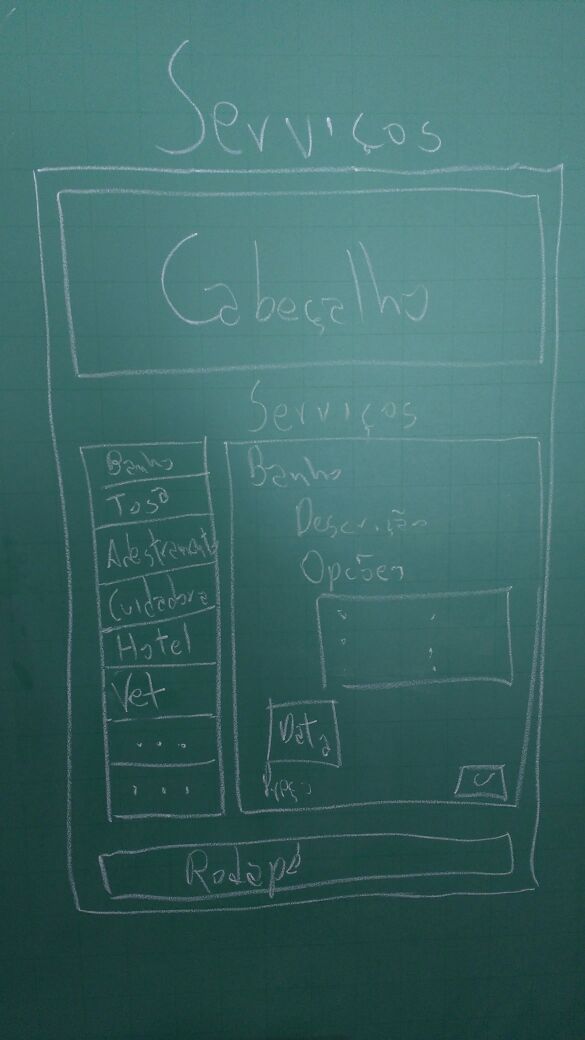 Serviços
Cabeçalho
Serviços
Banho
Tosa
Adestramento
Cuidadora
Hotel
Vet
. . .
. . .
Banho
Descrição
Opções
Data
Preço
Rodapé